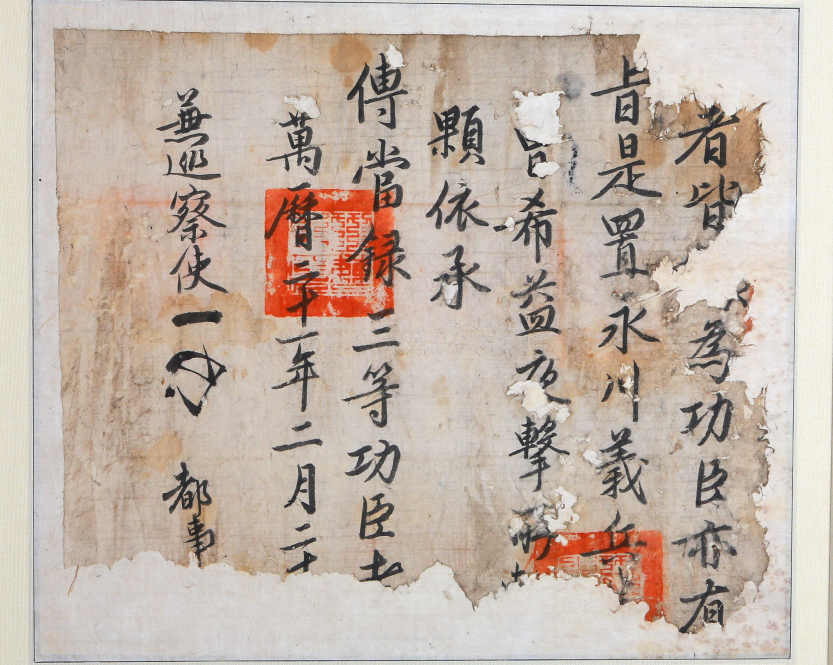 者皆為功臣亦有
旨是置永川義兵
旨希益夜擊斬
顆依承
傳當錄三等功臣
萬曆二十一年二月二十
兼巡察使 都事